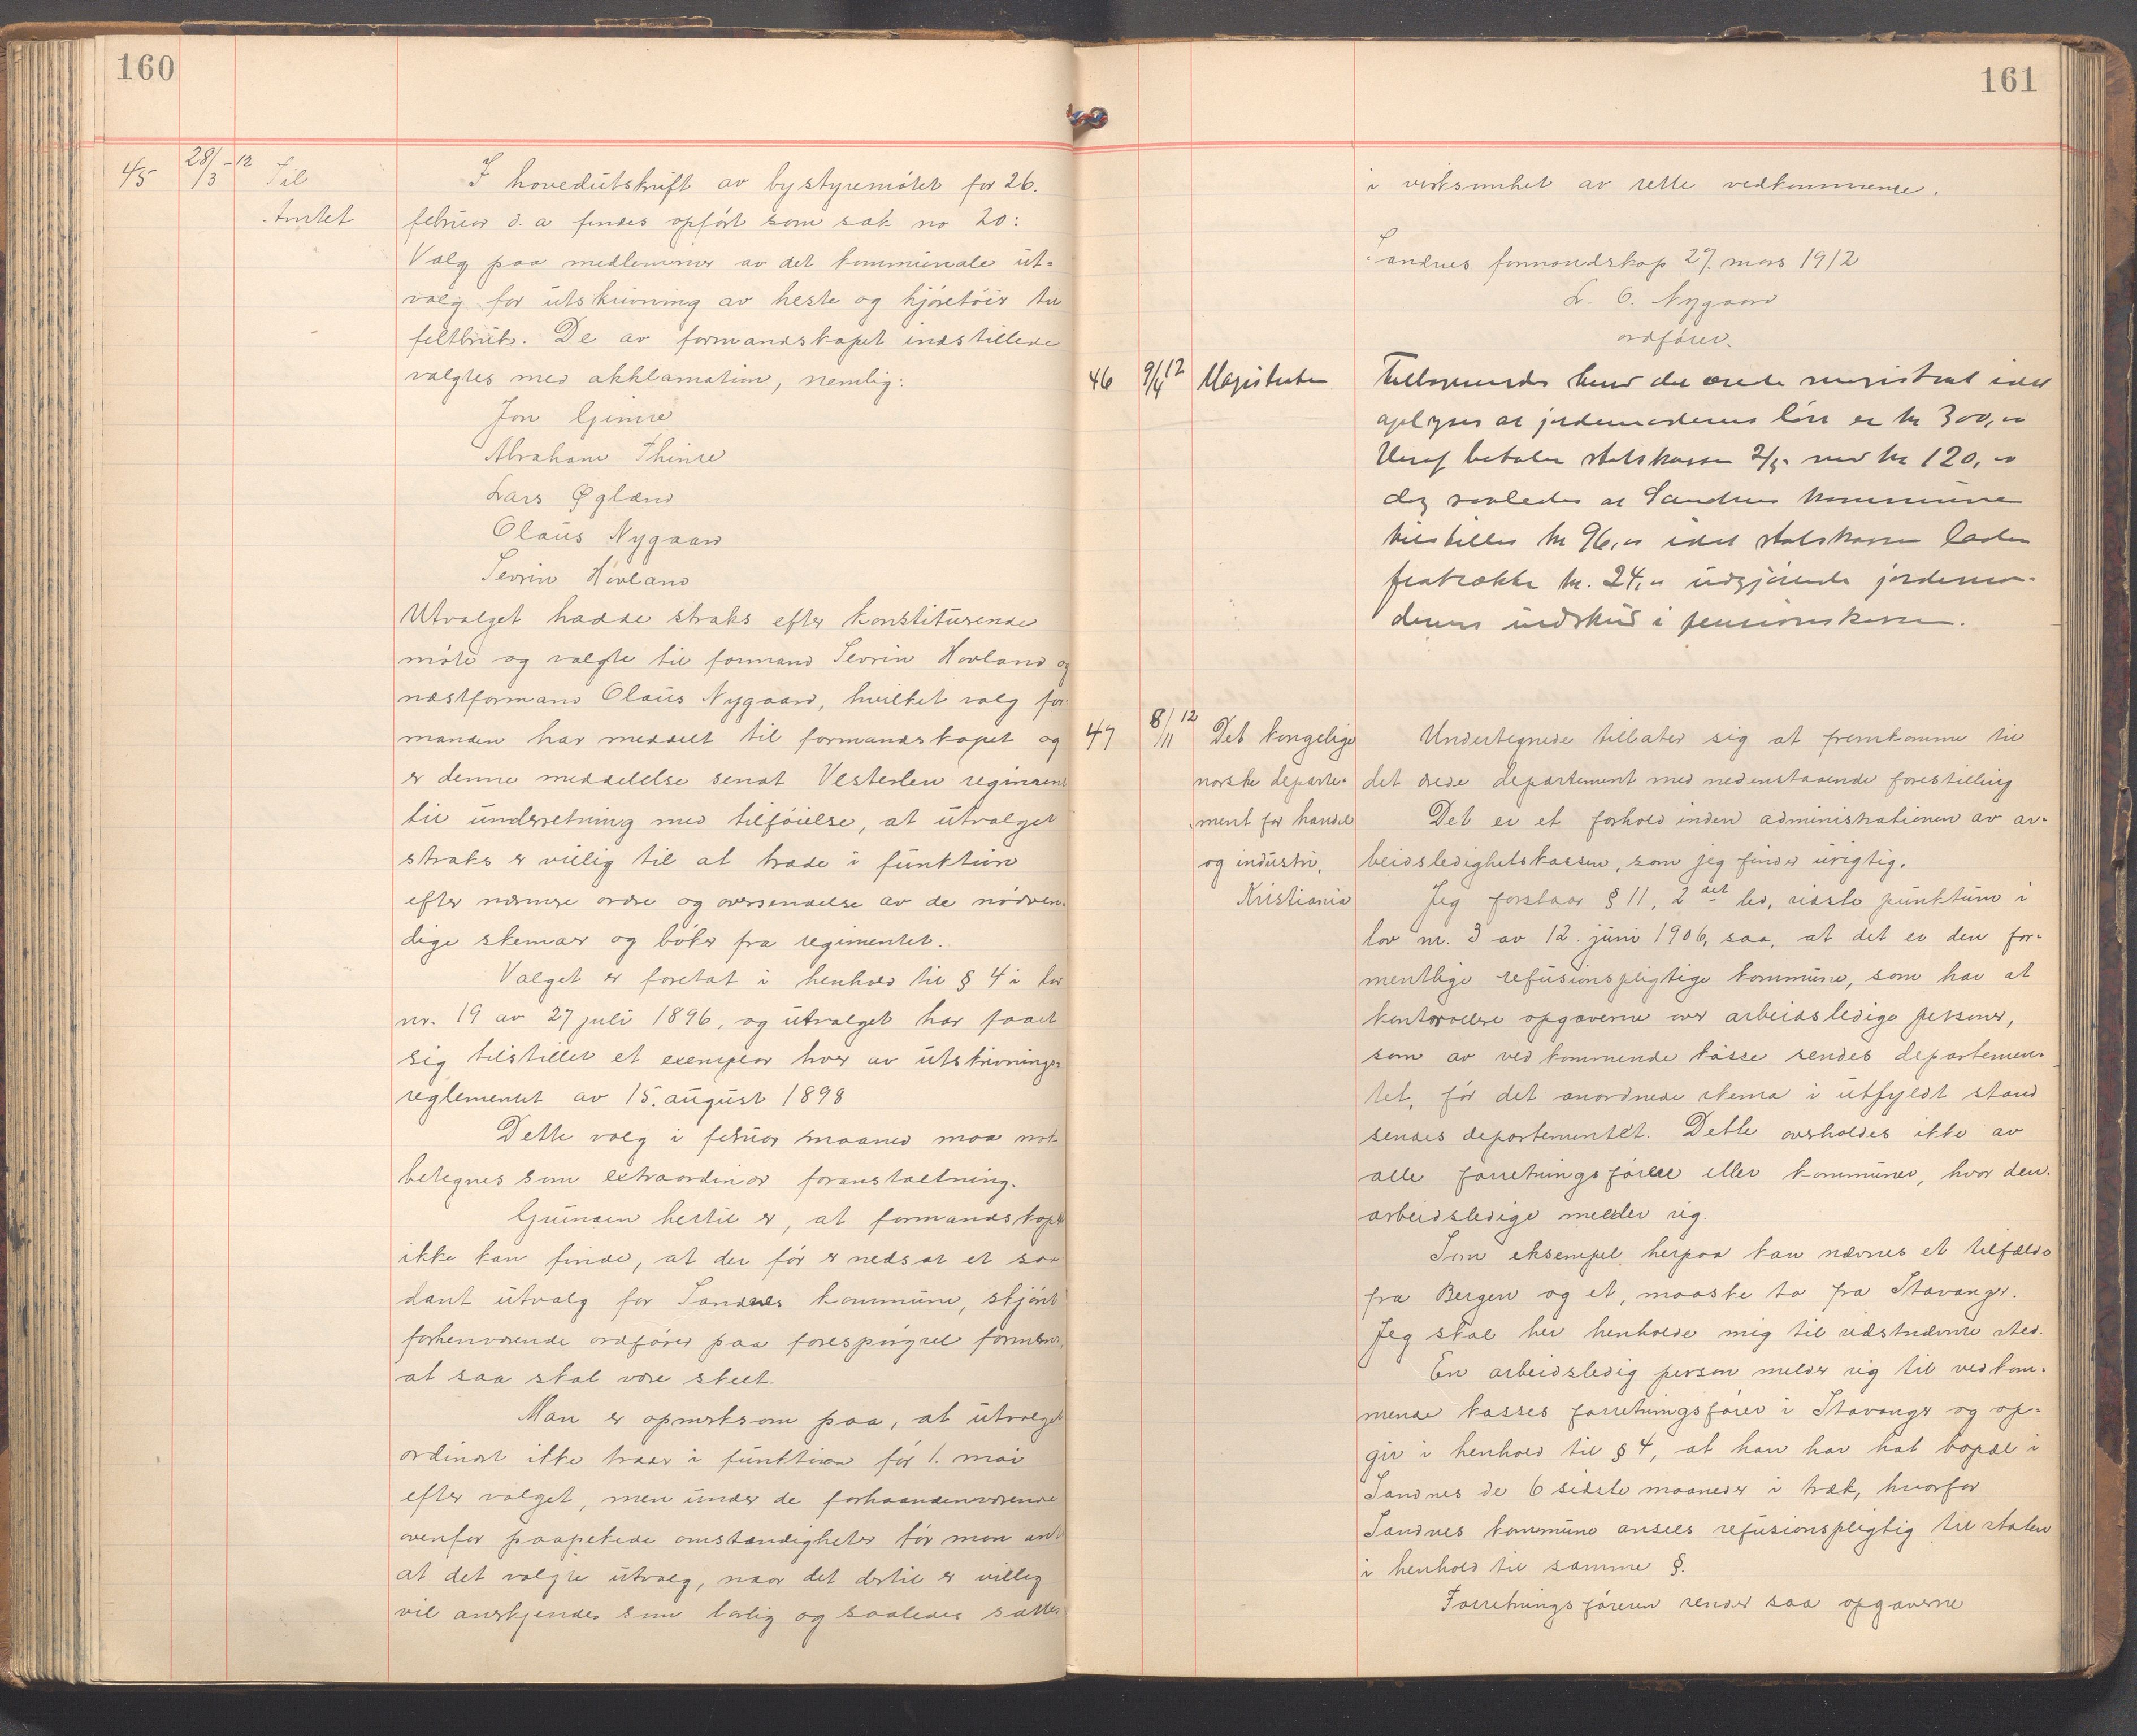 160
45 28/3-12 Til Amtet
I hovedutskrift av bystyremötet for 26.
februar d. a findes opfört som sak no 20:
Valg paa medlemmer av det kommunale ut=
valg for utskrivning av heste og kjöretöier til
feltbruk. De av formandskapet indstillede
valgtes med akklamation, nemlig:
Jon Gimre
Abraham Thime
Lars Øgland
Olaus Nygaard
Sevrin Hovland
Utvalget hadde straks efter konstituerende
möte og valgte til formand Sevrin Hovland og
næstformand Olaus Nygaard, hvilket valg for-
manden har meddelt til formandskapet og
er denne meddelelse sendt Vesterlen regiment
til underretning med tilföielse, at utvalget
straks er villig til at træde i funktion
efter nærmere ordre og oversendelse av de nödven-
dige skemaer og böker fra regimentet.
Valget er foretat i henhold til § 4 i lov
nr. 19 av 27 juli 1896, og utvalget har faaet
sig tilstillet et exemplar hver av utskrivnings-
reglementet av 15. august 1898
Dette valg i februar maaned maa
betegnes som extraordinær foranstaltning.
Grunden hertil er, at formandskapet
ikke kan finde, at der för er nedsat et saa-
dant utvalg for Sandnes kommune, skjönt
forhenværende ordförer paa forespörgsel formener,
at saa skal være skeet.
Man er opmerksom paa, at utvalget
ordinært ikke træder i funktion för 1. mai
efter valget, men under de forhaandenværende
ovenfor paapekede omstændigheter tör man anta
at det valgte utvalg, naar det dertil er villig
vil anerkjendes som lovlig og saaledes sættes
161
i virksomhet av rette vedkommende.
Sandnes formandskap 27. mars 1912
L. O. Nygaard
ordförer.
46 9/4 12 Magistraten
Tilbagesendes den ærede magistrat idet
oplyses at jordemoderens lön er kr 300,00
Heraf betaler statskassen 2/5 med kr 120,00
dog saaledes at Sandnes kommune
tilstilles kr 96,00 idet statskassen lader
fratrække kr. 24,00 udgjörende jordemo-
derens indskud i pensionskassen.
47 8/11 12 Det kongelige
norske departe-
ment for handel
og industri,
Kristiania
Undertegnede tillater sig at fremkomme til
det ærede departement med nedenstaaende forestilling
Det er et forhold inden administrationen av ar-
beidsledighetskassen, som jeg finder urigtig.
Jeg forstaar § 11, 2det led, sidste punktum i
lov nr. 3 av 12. juni 1906, saa, at det er den for-
mentlige refusionspligtige kommune, som har at
kontorollere opgaverne over arbeidsledige personer,
som av vedkommende kasse sendes departemen-
tet, för det anordnede skema i utfyldt stand
sendes departementet. Dette overholdes ikke av
alle forretningsförere eller kommuner, hvor den
arbeidsledige melder sig.
Som eksempel herpaa kan nævnes et tilfælde
fra Bergen og et, maaske to fra Stavanger.
Jeg skal her henholde mig til sidstnævnte sted.
En arbeidsledig person melder sig til vedkom-
mende kasses forretningsförer i Stavanger og op-
gir i henhold til § 4, at han har hat bopæl i
Sandnes de 6 sidste maaneder i træk, hvorfor
Sandnes kommune ansees refusionspligtig til staten
i henhold til samme §.
Forretningsföreren sender saa opgaverne